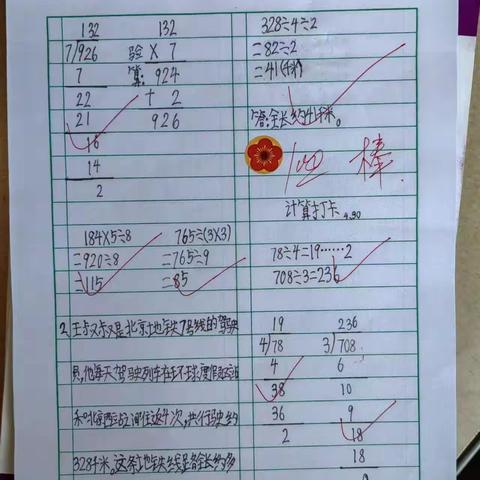 132
7/926
7
22
21
16
14
2
132
验 × 7
算: 924
+ 2
926
184×5÷8
=920÷8
=115
765÷(3×3)
=765÷9
=85
2、王叔叔是北京地铁7号线的驾驶
员,他每天驾驶列车在环球度假区站
和北京西站之间往返4次,共行驶约
328千米。这条地铁线是全长约多
328÷4÷2
=82÷2
=41(千米)
答:全长约41千米。
100 棒
计算打卡 4.30
78÷4=19……2
708÷3=236
19
4/78
4
38
36
2
236
3/708
6
10
9
18
18
0